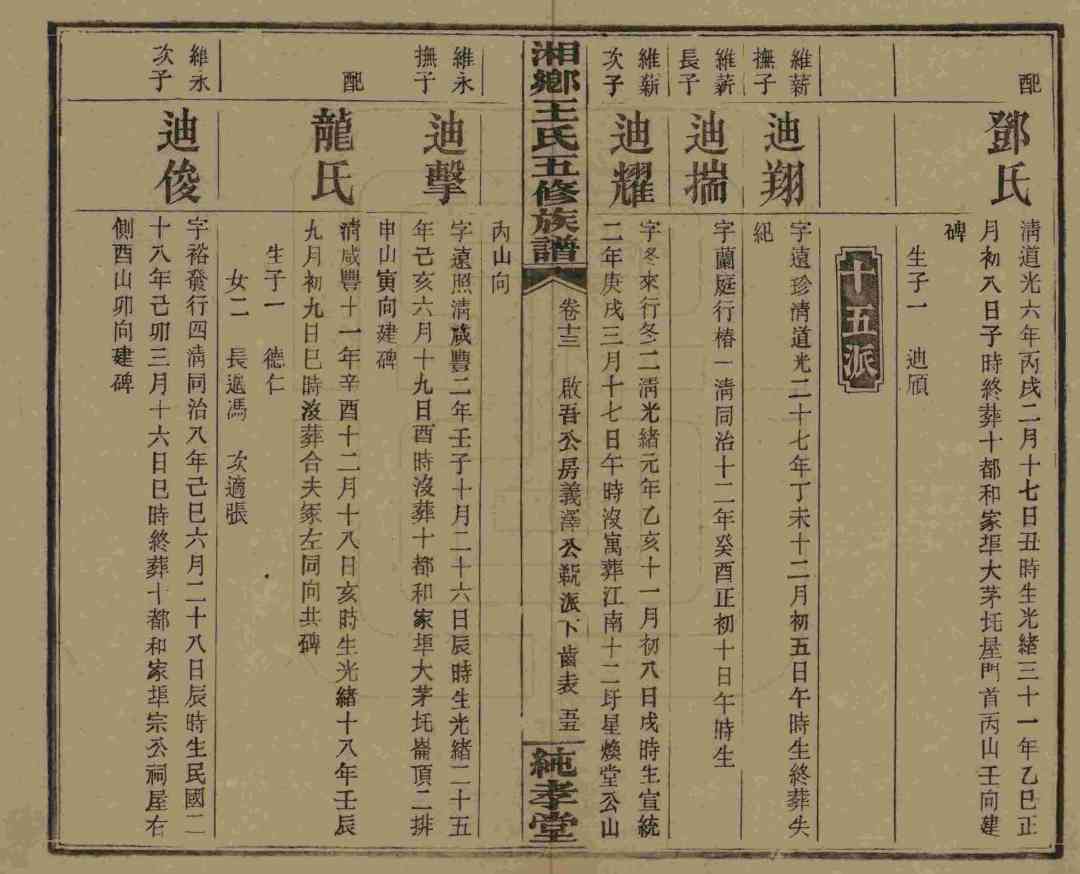 配
鄧氏
清道光六年丙戌二月十七日丑時生光緒三十一年乙巳正
月初八日子時終葬十都和家埠大茅坵屋門首丙山壬向建
碑
生子一 迪頎
十五派
維薪
撫子
迪翔
字遠珍清道光二十七年丁未十二月初五日午時生終葬失
紀
維薪
長子
迪揣
字蘭庭行椿一清同治十二年癸酉正初十日午時生
維薪
次子
迪耀
字冬來行冬二清光緒元年乙亥十一月初八日戌時生宣統
二年庚戌三月十七日午時沒寓葬江南十二圩星煥堂公山
湘鄉王氏五修族譜
卷十三
啟吾公房義澤公勲派下齒表 五五
純孝堂
丙山向
維永
撫子
迪擊
字遠照清咸豐二年壬子十月二十六日辰時生光緒二十五
年己亥六月十九日酉時沒葬十都和家埠大茅坵崙頂二排
申山寅向建碑
配
龍氏
清咸豐十一年辛酉十二月十八日亥時生光緒十八年壬辰
九月初九日巳時沒葬合夫冢左同向共碑
生子一 德仁
女二 長適馮 次適張
維永
次子
迪俊
字裕發行四清同治八年己巳六月二十八日辰時生民國二
十八年己卯三月十六日巳時終葬十都和家埠宗公祠屋右
側酉山卯向建碑